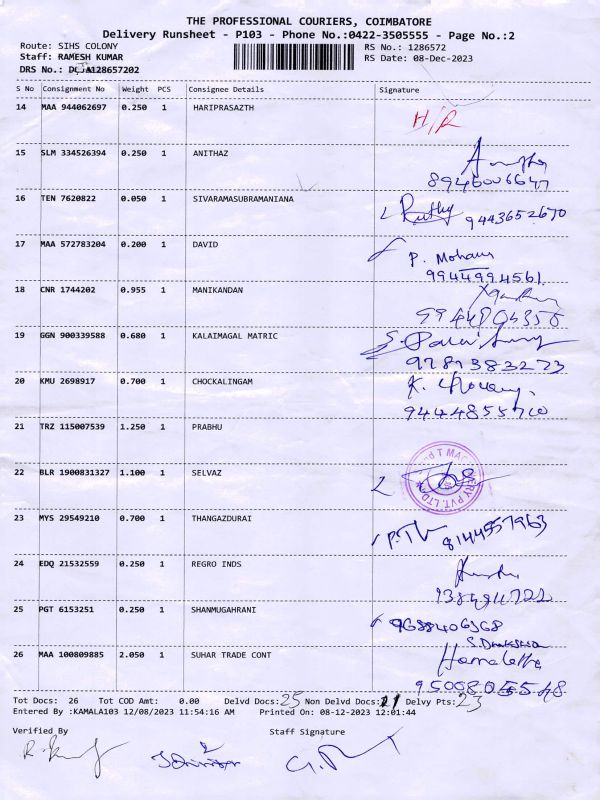 THE PROFESSIONAL COURIERS, COIMBATORE
Delivery Runsheet - P103 - Phone No.:0422-3505555 - Page No.:2
Route: SIHS COLONY
RS No.: 1286572
Staff: RAMESH KUMAR
RS Date: 08-Dec-2023
DRS No.:
S No Consignment No Weight PCS Consignee Details Signature
14 MAA 944062697 0.250 1 HARIPRASAZTH H/R
15 SLM 334526394 0.250 1 ANITHAZ
16 TEN 7620822 0.050 1 SIVARAMASUBRAMANIANA
9443652670
17 MAA 572783204 0.200 1 DAVID P. Mohan
9944994561
18 CNR 1744202 0.955 1 MANIKANDAN
19 GGN 900339588 0.680 1 KALAIMAGAL MATRIC
9789383273
20 KMU 2698917 0.700 1 CHOCKALINGAM
21 TRZ 115007539 1.250 1 PRABHU
22 BLR 1900831327 1.100 1 SELVAZ
23 MYS 29549210 0.700 1 THANGAZDURAI
8144557963
24 EDQ 21532559 0.250 1 REGRO INDS
25 PGT 6153251 0.250 1 SHANMUGAHRANI
26 MAA 100809885 2.050 1 SUHAR TRADE CONT
Tot Docs: 26 Tot COD Amt: 0.00 Delvd Docs: 25 Non Delvd Docs: Delvy Pts: 23
Entered By :KAMALA103 12/08/2023 11:54:16 AM Printed On: 08-12-2023 12:01:44
Verified By Staff Signature